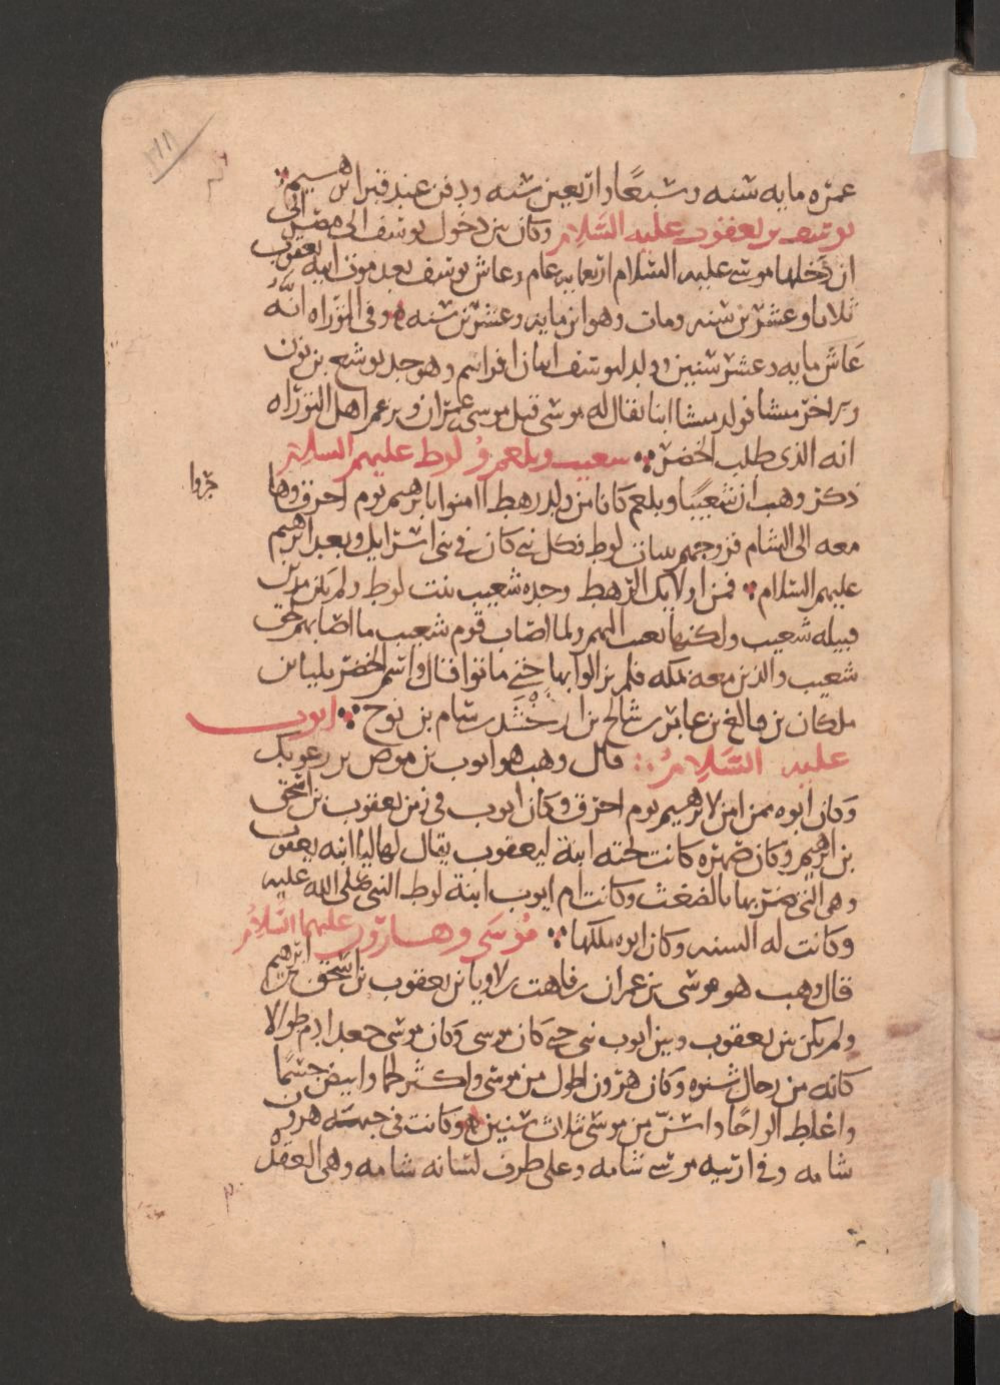 عمره مايه سنه وسبعًا واربعين سنه ودفن عند قبر ابرهيم
يوسف بن يعقوب عليه السلام وكان بين دخول يوسف الى مصر الى
ان دخلها موسى عليه السلام اربعمايه عام وعاش يوسف بعد موت ابيه يعقوب
ثلاثا وعشرين سنه ومات وهو ابن مايه وعشرين سنه وفى التوراه انّه
عاش مايه وعشر سنين وولد ليوسف ابنان افرايم وهو جد يوشع بن نون
والاخر ميشا فولد لميشا ابنا يقال له موسى قبل موسى بن عمران ويزعم اهل التوراه
انه الذى طلب الخضر شعيب وبلعم و لوط عليهم السلام
ذكر وهب ان شعيبًا وبلعم كانا من ولد رهط امنوا بابرهيم يوم احرق وهاجروا
معه الى الشام فزوجهم بنات لوط فكل نبى كان فى بنى اسرايل وبعد ابرهيم
عليهم السلام فمن اولايك الرهط وجده شعيب بنت لوط ولم يكن مدين
قبيله شعيب ولكنها بعث اليهم ولما اصاب قوم شعيب ما اصابهم لحق
شعيب والذين معه بمكه فلم يزالوا بها حتى ماتوا قال واسم الخضر بليا بن
ملكان بن فالغ بن عابر بن شالخ بن ارفخشد بن سام بن نوح ايوب
عليه السلام قال وهب هو ايوب بن موص بن رعويل
وكان ابوه ممن امن لابرهيم يوم احرق وكان ايوب فى زمن يعقوب بن اسحق
بن ابرهيم وكان صهره كانت تحته ابنة ليعقوب يقال لها ليا ابنه يعقوب
وهى التى ضربها بالضغث وكانت ام ايوب ابنة لوط النبى صلى الله عليه
وكانت له البثنيه وكان ابوه ملكها موسى وهارون عليهما السلام
قال وهب هو موسى بن عمران بن قاهث بن لاوى بن يعقوب بن اسحق بن ابرهيم
ولم يكن بين يعقوب وبين ايوب نبى حتى كان موسى وكان موسى جعدا ادم طوالا
كانه من رجال شنوه وكان هرون اطول من موسى واكثر لحما وابيض جسمًا
واغلظ الواحًا واسنّ من موسى بثلاث سنين وكانت فى جبهة هرون
شامه وفى ارنبه موسى شامه وعلى طرف لسانه شامه وهى العقدة